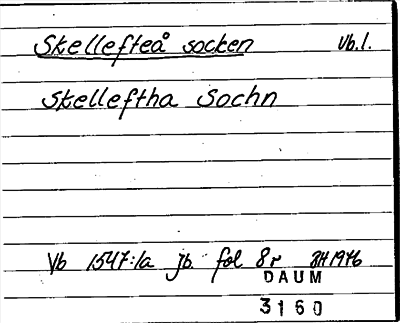 Skellefteå socken Vb.l.
Skelleftha Sochn
Vb 1547:1a jb. fol 8r BH 1976
DAUM
3160